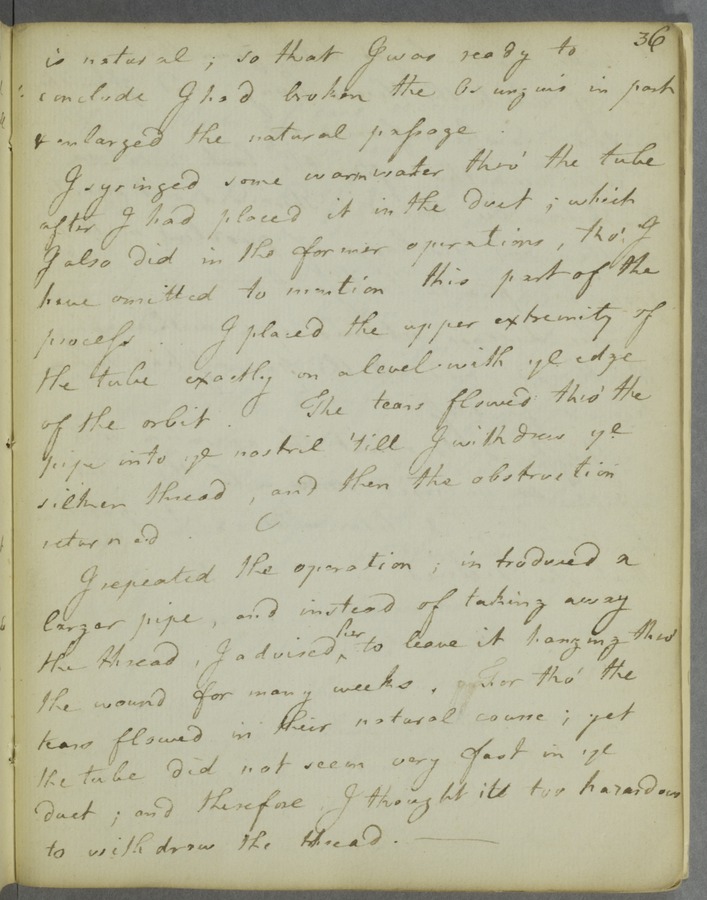 36
is natural; so that I was ready to
conclude I had broken the Os unguis in part
& enlarged the natural passage.
I syringed some warm water thro' the tube
after I had placed it in the duct; which
I also did in the former operations, tho' I
have omitted to mention this part of the
process. I placed the upper extremity of
the tube exactly on a level with ye edge
of the orbit. The tears flowed thro' the
pipe into ye nostril 'till I withdrew ye
silken thread, and then the obstruction
returned.
I repeated the operation; introduced a
larger pipe, and instead of taking away
the thread, I advised her to leave it hanging thro'
the wound for many weeks. For tho' the
tears flowed in their natural course; yet
the tube did not seem very fast in ye
duct; and therefore I thought it too hazardous
to withdraw the thread. —